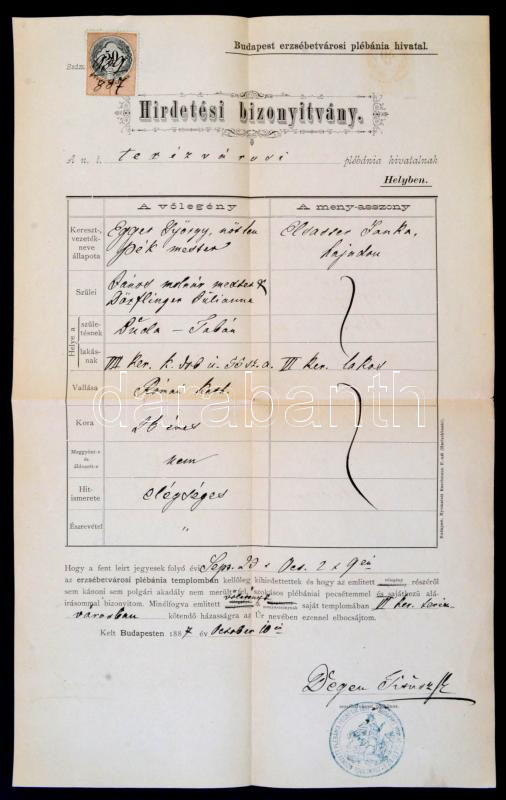 Budapest erzsébetvárosi plébánia hivatal.
Szám
50
887
Hirdetési bizonyitvány.
A n. t. terézvárosi plébánia hivatalnak
Helyben.
A vőlegény A meny-asszony
Kereszt-, vezeték-neve állapota Egger György, nőtlen pék mester Elsasser Janka, hajadon
Szülei János molnár mester & Dörflinger Julianna
Helye a születésnek Buda – Tabán
lakásnak VII ker. k. dob u. 15 sz. a. VI ker. lakos
Vallása Római kath.
Kora 26 éves
Meggyónt-e és áldozott-e nem
Hit-ismerete elégséges
Észrevétel "
Hogy a fent leirt jegyesek folyó évi Sept. 23 s Oct. 2 s 9 én
az erzsébetvárosi plébánia templomban kellőleg kihirdettettek és hogy az emlitett vőlegény részéről
sem kánoni sem polgári akadály nem merült fel, szokásos plébániai pecsétemmel és sajátkezű alá-
irásommal bizonyitom. Minélfogva emlitett vőlegényt & saját templomában VI ker. Teréz-
városban kötendő házasságra az Úr nevében ezennel elbocsájtom.
Kelt Budapesten 1887 év October 10 én
Degen
darabanth